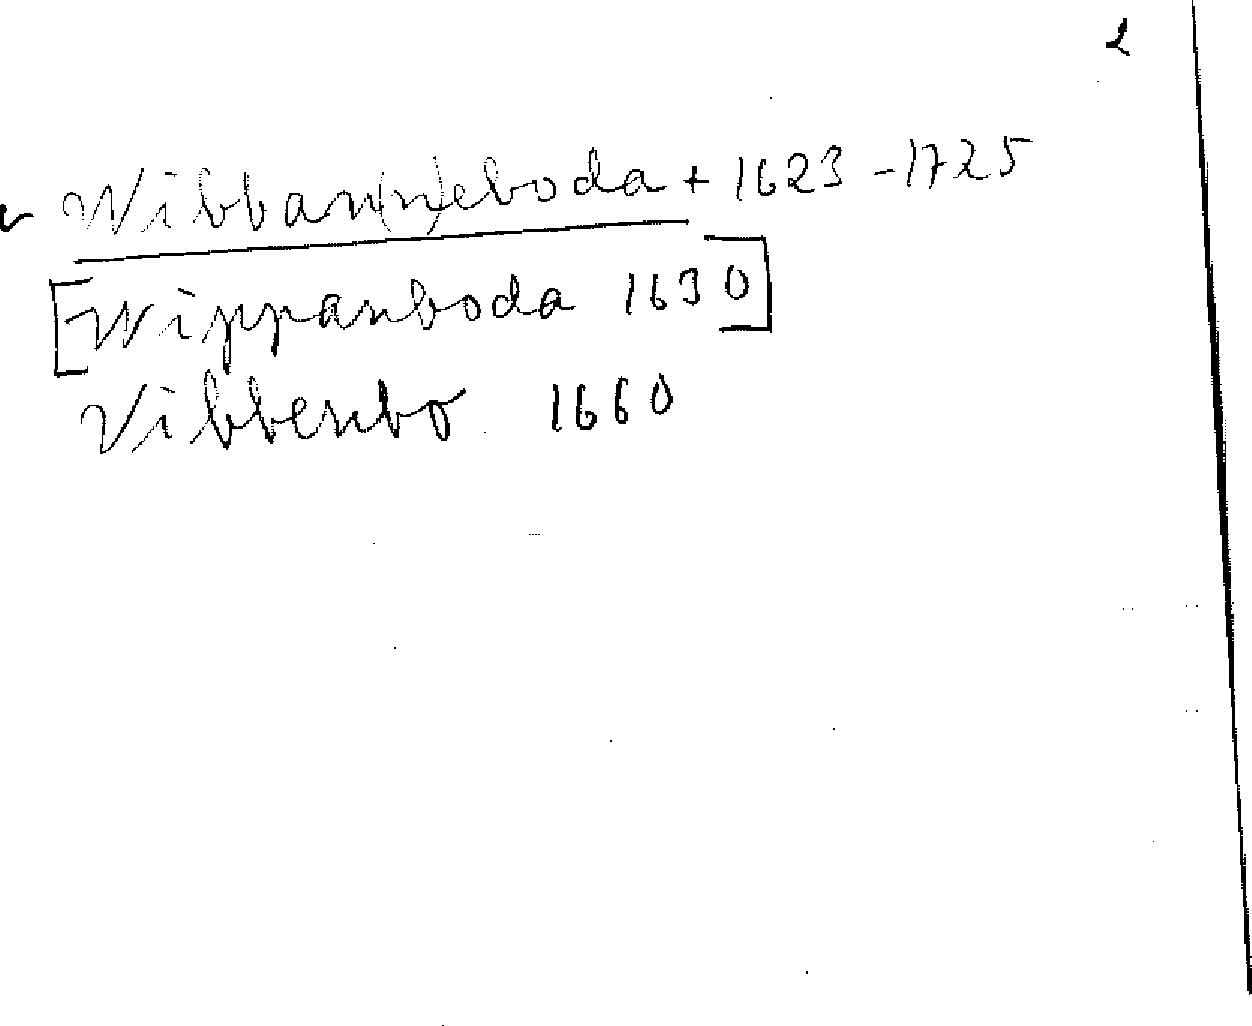 2
Wibban(n)eboda + 1623 - 1725
[Wippanboda 1630]
Vibbenbo 1660